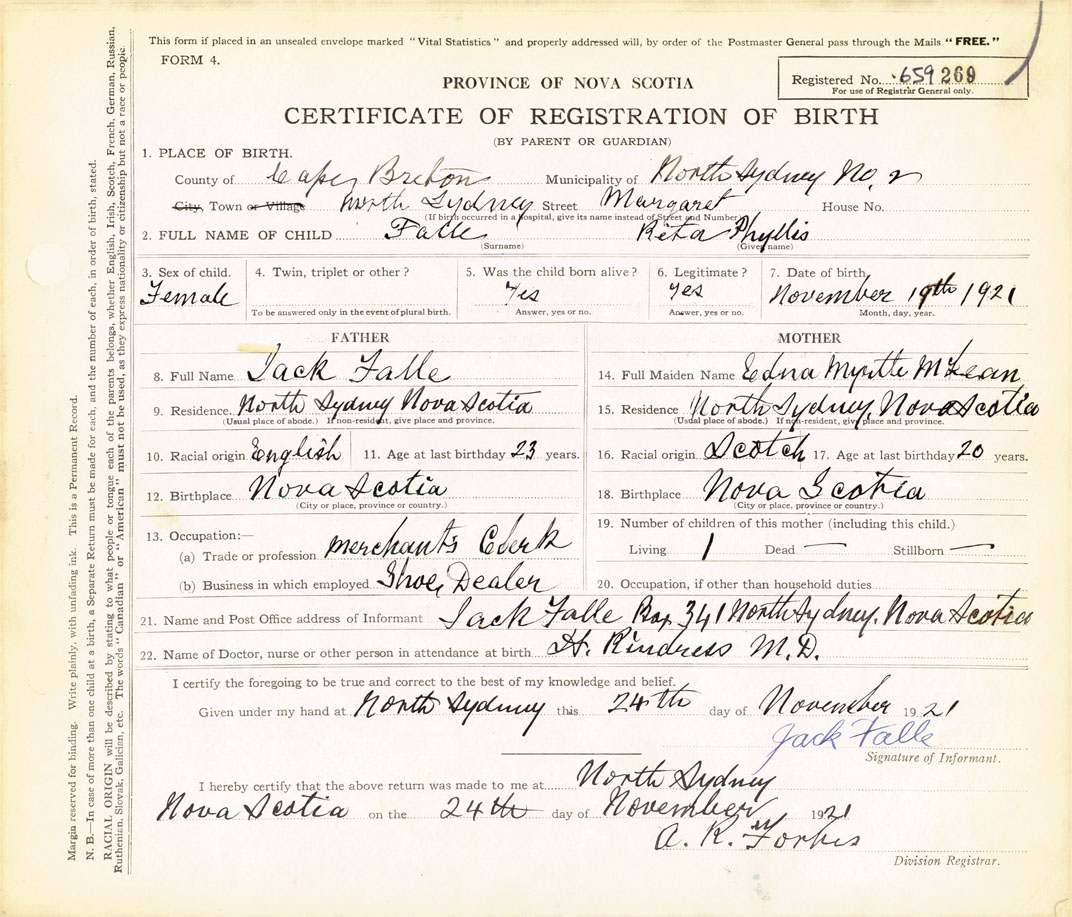 This form if placed in an unsealed envelope marked "Vital Statistics" and properly addressed will, by order of the Postmaster General pass through the Mails "FREE."
FORM 4.
Registered No. 659 269
For use of Registrar General only.
PROVINCE OF NOVA SCOTIA
CERTIFICATE OF REGISTRATION OF BIRTH
(BY PARENT OR GUARDIAN)
1. PLACE OF BIRTH.
County of Cape Breton Municipality of North Sydney No. 2
City, Town or Village North Sydney Street Margaret House No.
(If birth occurred in a hospital, give its name instead of Street and Number)
2. FULL NAME OF CHILD Falle Rita Phyllis
(Surname) (Given name)
3. Sex of child. 4. Twin, triplet or other? 5. Was the child born alive? 6. Legitimate? 7. Date of birth,
Female Yes Yes November 19th 1921
To be answered only in the event of plural birth. Answer, yes or no. Answer, yes or no. Month, day, year.
FATHER MOTHER
8. Full Name Jack Falle 14. Full Maiden Name Edna Myrtle McLean
9. Residence North Sydney Nova Scotia 15. Residence North Sydney, Nova Scotia
(Usual place of abode.) If non-resident, give place and province. (Usual place of abode.) If non-resident, give place and province.
10. Racial origin English 11. Age at last birthday 23 years. 16. Racial origin Scotch 17. Age at last birthday 20 years.
12. Birthplace Nova Scotia 18. Birthplace Nova Scotia
(City or place, province or country.) (City or place, province or country.)
13. Occupation:— 19. Number of children of this mother (including this child.)
(a) Trade or profession Merchants Clerk Living 1 Dead — Stillborn —
(b) Business in which employed Shoe Dealer 20. Occupation, if other than household duties
21. Name and Post Office address of Informant Jack Falle Box 341 North Sydney, Nova Scotia
22. Name of Doctor, nurse or other person in attendance at birth H. Rindress M.D.
I certify the foregoing to be true and correct to the best of my knowledge and belief.
Given under my hand at North Sydney this 24th day of November 1921
Jack Falle
Signature of Informant.
I hereby certify that the above return was made to me at North Sydney
Nova Scotia on the 24th day of November 1921
A. R. Forbes
Division Registrar.
Margin reserved for binding. Write plainly, with unfading ink. This is a Permanent Record.
N. B.—In case of more than one child at a birth, a Separate Return must be made for each, and the number of each, in order of birth, stated.
RACIAL ORIGIN will be described by stating to what people or tongue each of the parents belongs, whether English, Irish, Scotch, French, German, Russian,
Ruthenian, Slovak, Galician, etc. The words "Canadian" or "American" must not be used, as they express nationality or citizenship but not a race or people.